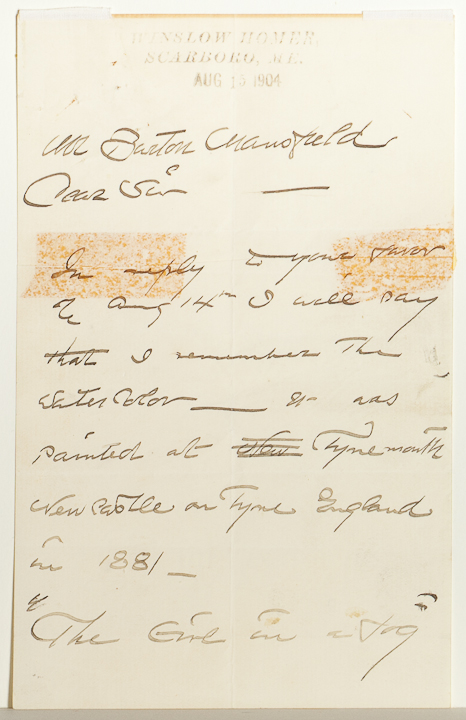 WINSLOW HOMER,
SCARBORO, ME.
AUG 15 1904
Mr Burton Mansfield
Dear Sir —
In reply to your favor
of Aug 14th I will say
that I remember the
Water Color — It was
painted at New Tynemouth
New Castle on Tyne England
in 1881 —
"The Girl in a fog"